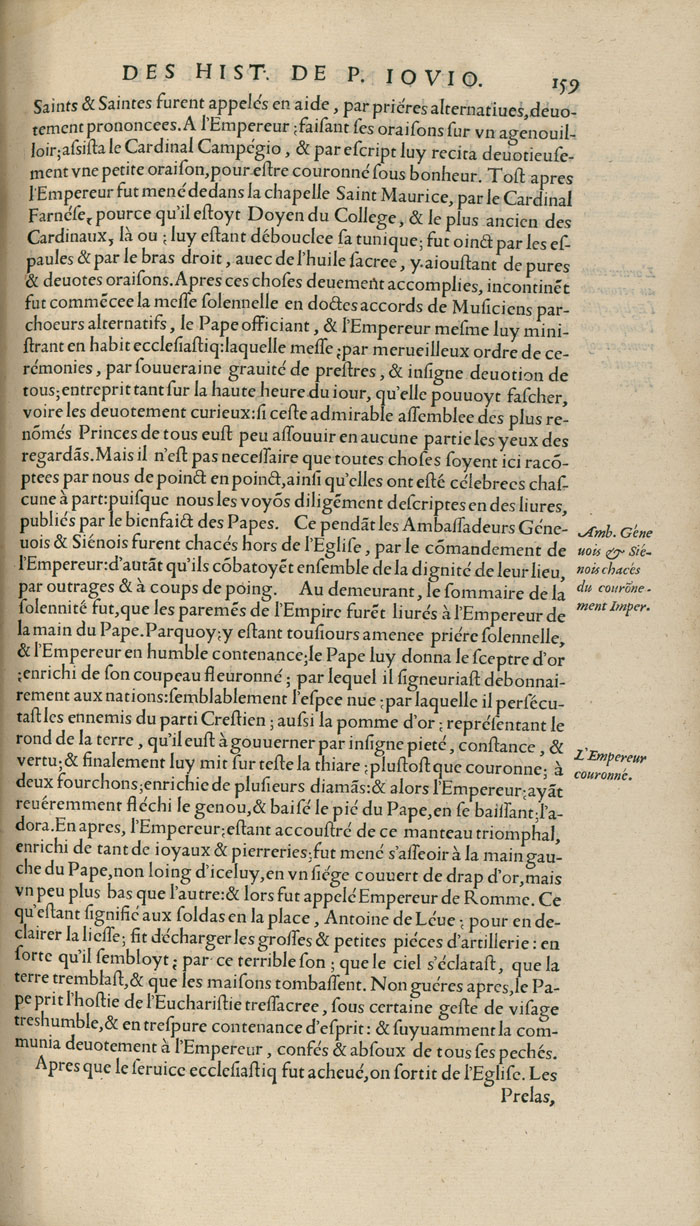 DES HIST. DE P. IOVIO. 159
Saints & Saintes furent appelés en aide, par priéres alternatiues, deuo-
tement prononcees. A l'Empereur ; faiſant ſes oraiſons ſur vn agenouil-
loir; aſsiſta le Cardinal Campégio, & par eſcript luy recita deuotieuſe-
ment vne petite oraiſon, pour eſtre couronné ſous bonheur. Toſt apres
l'Empereur fut mené dedans la chapelle Saint Maurice, par le Cardinal
Farnéſe, pource qu'il eſtoyt Doyen du College, & le plus ancien des
Cardinaux, là ou ; luy eſtant débouclee ſa tunique; fut oinct par les eſ-
paules & par le bras droit, auec de l'huile ſacree, y aiouſtant de pures
& deuotes oraiſons. Apres ces choſes deuement accomplies, incontinẽt
fut commẽcee la meſſe ſolennelle en doctes accords de Muſiciens par-
choeurs alternatifs, le Pape officiant, & l'Empereur meſme luy mini-
ſtrant en habit eccleſiaſtiq: laquelle meſſe ; par merueilleux ordre de ce-
rémonies, par ſouueraine grauité de preſtres, & inſigne deuotion de
tous; entreprit tant ſur la haute heure du iour, qu'elle pouuoyt faſcher,
voire les deuotement curieux: ſi ceſte admirable aſſemblee des plus re-
nõmés Princes de tous euſt peu aſſouuir en aucune partie les yeux des
regardãs. Mais il n'eſt pas neceſſaire que toutes choſes ſoyent ici racõ-
ptees par nous de poinct en poinct, ainſi qu'elles ont eſté célebrees chaſ-
cune à part: puiſque nous les voyõs diligẽment deſcriptes en des liures,
publiés par le bienfaict des Papes. Ce pendãt les Ambaſſadeurs Géne-
uois & Siénois furent chacés hors de l'Egliſe, par le cõmandement de
l'Empereur: d'autãt qu'ils cõbatoyẽt enſemble de la dignité de leur lieu,
par outrages & à coups de poing. Au demeurant, le ſommaire de la
ſolennité fut, que les paremẽs de l'Empire furẽt liurés à l'Empereur de
la main du Pape. Parquoy; y eſtant touſiours amenee priére ſolennelle,
& l'Empereur en humble contenance; le Pape luy donna le ſceptre d'or
; enrichi de ſon coupeau fleuronné ; par lequel il ſigneuriaſt debonnai-
rement aux nations: ſemblablement l'eſpee nue ; par laquelle il perſécu-
taſt les ennemis du parti Creſtien ; auſsi la pomme d'or ; repréſentant le
rond de la terre, qu'il euſt à gouuerner par inſigne pieté, conſtance, &
vertu; & finalement luy mit ſur teſte la thiare ; pluſtoſt que couronne; à
deux fourchons; enrichie de pluſieurs diamãs: & alors l'Empereur; ayãt
reuéremment fléchi le genou, & baiſé le pié du Pape, en ſe baiſſant; l'a-
dora. En apres, l'Empereur; eſtant accouſtré de ce manteau triomphal,
enrichi de tant de ioyaux & pierreries; fut mené s'aſſeoir à la main gau-
che du Pape, non loing d'iceluy, en vn ſiége couuert de drap d'or, mais
vn peu plus bas que l'autre: & lors fut appelé Empereur de Romme. Ce
qu'eſtant ſignifié aux ſoldas en la place, Antoine de Léue ; pour en de-
clairer la lieſſe; fit décharger les groſſes & petites piéces d'artillerie: en
ſorte qu'il ſembloyt ; par ce terrible ſon ; que le ciel s'éclataſt, que la
terre tremblaſt, & que les maiſons tombaſſent. Non guéres apres, le Pa-
pe prit l'hoſtie de l'Euchariſtie treſſacree, ſous certaine geſte de viſage
treshumble, & en treſpure contenance d'eſprit: & ſuyuamment la com-
munia deuotement à l'Empereur, confés & abſoux de tous ſes pechés.
Apres que le ſeruice eccleſiaſtiq fut acheué, on ſortit de l'Egliſe. Les
Prelas,
Amb. Géne
uois & Sié-
nois chacés
du courõne-
ment Imper.
L'Empereur
couronné.